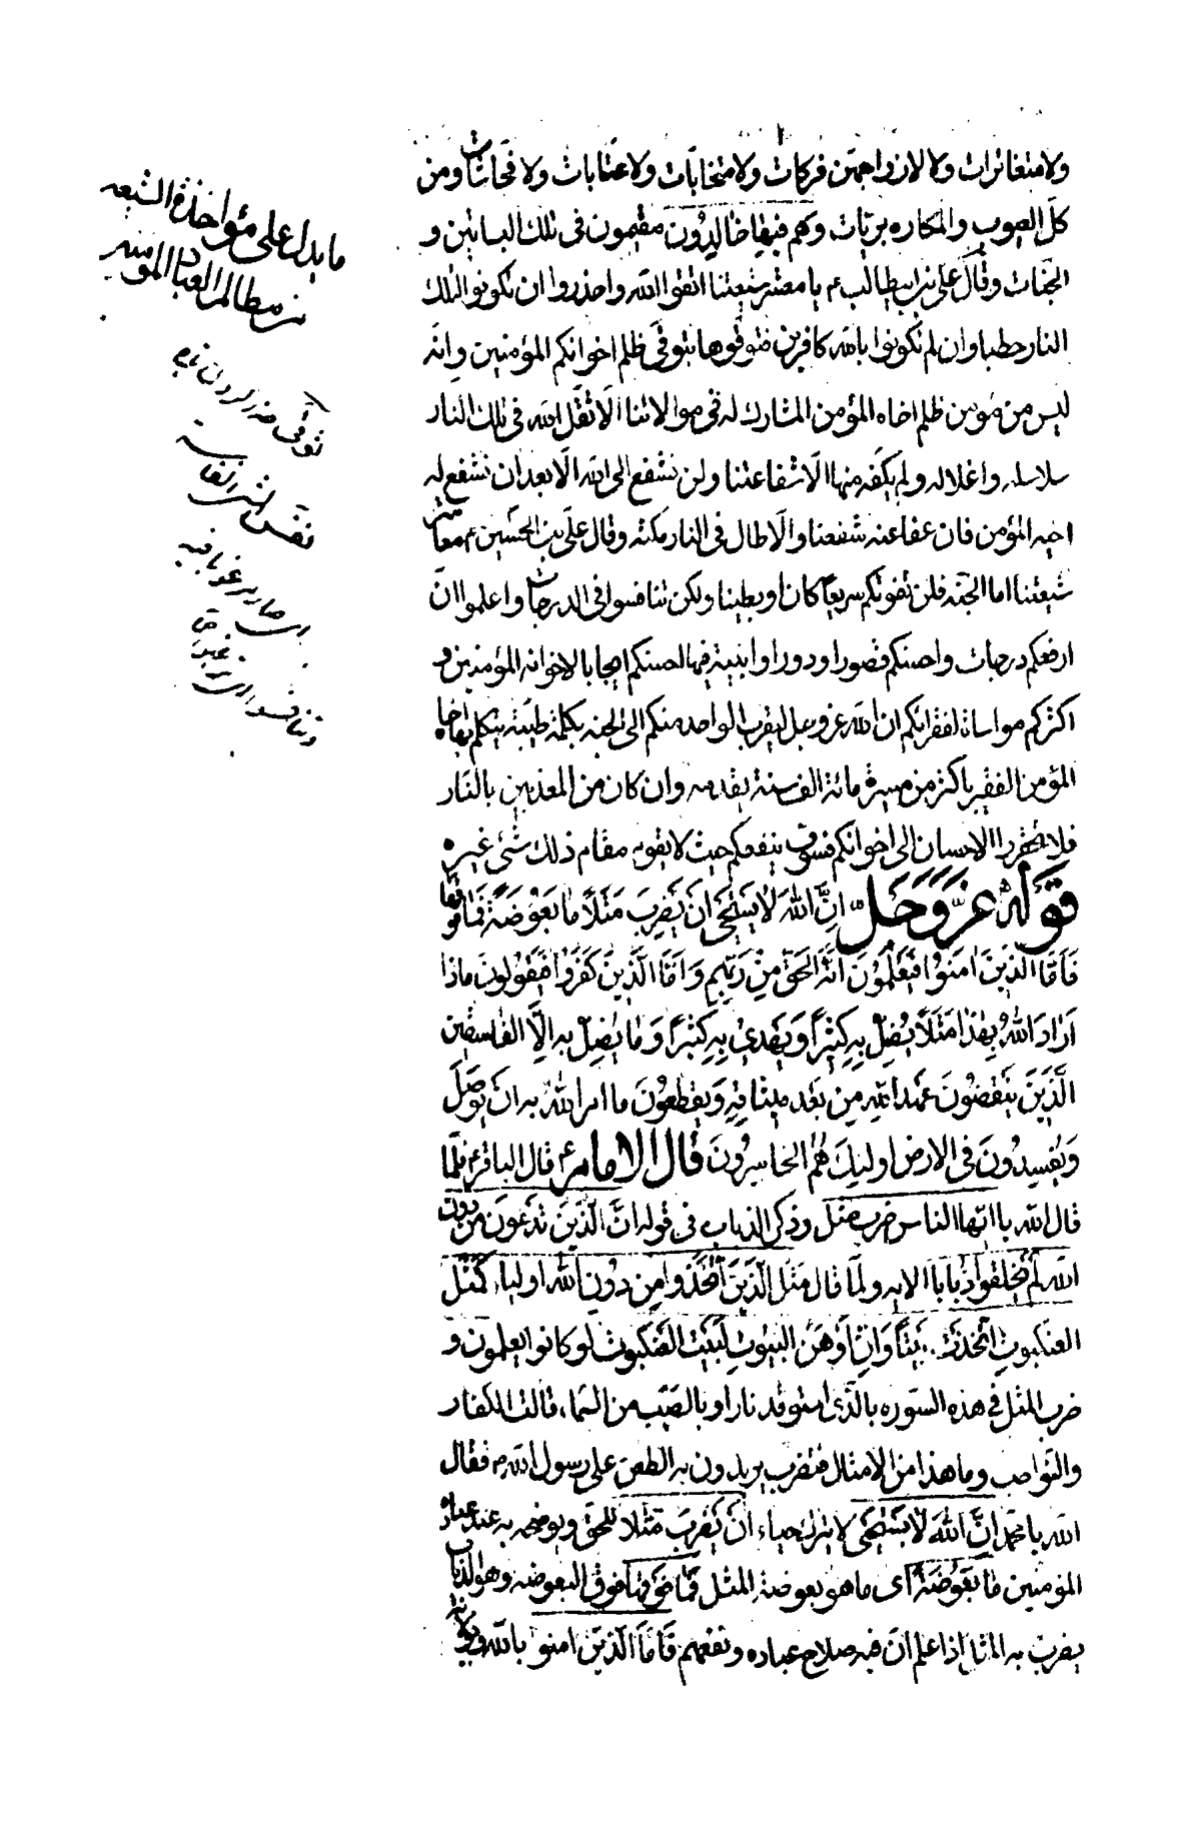 ولا متغائرات ولا لازواجهن فركات ولا متخابّات ولا عتّابات ولا فحّاشات ومن
كلّ العيوب والمكاره بريّات وهم فيها خالدون مقيمون فى تلك البساتين و
الجنات وقال على بن ابيطالب ع يا معشر شيعتنا اتقوا الله واحذروا ان تكونوا لتلك
النار حطبا وان لم تكونوا بالله كافرين فتوقوها بتوقى ظلم اخوانكم المؤمنين وانه
ليس من مؤمن ظلم اخاه المؤمن المشارك له فى موالاتنا الّا ثقّل الله فى تلك النار
سلاسله واغلاله ولم يكفّه منها الّا شفاعتنا ولن نشفع الى الله الّا بعد ان نشفع له
اخيه المؤمن فان عفا عنه شفعنا والّا طال فى النار مكثه وقال علىّ بن الحسين ع معاشر
شيعتنا اما الجنة فلن تفوتكم سريعًا كان او بطيئا ولكن تنافسوا فى الدرجات واعلموا انّ
ارفعكم درجات واحسنكم قصورا ودورا وابنية فيها احسنكم ايجابا لاخوانه المؤمنين و
اكثركم مواساة لفقرائكم ان الله عز وجل ليقرب الواحد منكم الى الجنة بكلمة طيّبة يتكلم بها اخاه
المؤمن الفقير باكثر من مسيرة مائة الف سنة بقدمه وان كان من المعذبين بالنار
فلا تحتقروا الاحسان الى اخوانكم فسوف ينفعكم حيث لا يقوم مقام ذلك شئ غيره
قوله عزّ وجلّ انّ الله لا يستحيى ان يضرب مثلًا ما بعوضة فما فوقها
فامّا الذين امنوا فيعلمون انّه الحقّ من ربّهم وامّا الّذين كفروا فيقولون ماذا
اراد الله بهذا مثلًا يضلّ به كثيرًا ويهدي به كثيرًا وما يضلّ به الّا الفاسقين
الّذين ينقضون عهد الله من بعد ميثاقه ويقطعون ما امر الله به ان يوصل
ويفسدون فى الارض اولئك هم الخاسرون قال الامام ع قال الباقر ع فلمّا
قال الله يا ايّها الناس ضرب مثل وذكر الذباب فى قوله انّ الّذين تدعون من دون
الله لم يخلقوا ذبابا الايه ولمّا قال مثل الّذين اتّخذوا من دون الله اولياء كمثل
العنكبوت اتّخذت بيتًا وانّ اوهن البيوت لبيت العنكبوت لو كانوا يعلمون و
ضرب المثل فى هذه السّورة بالّذى استوقد نارا وبالصّيّب من السّماء قالت الكفار
والنّواصب وما هذا من الامثال فيضرب يريدون به الطعن على رسول الله ص فقال
الله يا محمّد انّ الله لا يستحيى لا يترك حياء ان يضرب مثلا للحقّ ويوضحه به عند عباده
المؤمنين ما بعوضة اى ما هو بعوضة المثل فما فوقها فوق البعوضه وهو الذباب
يضرب به المثل اذا علم انّ فيه صلاح عباده ونفعهم فامّا الّذين امنوا بالله وبولاية
ما يدل على مؤاخذة الشيعه
من مظالم العباد المؤمنين